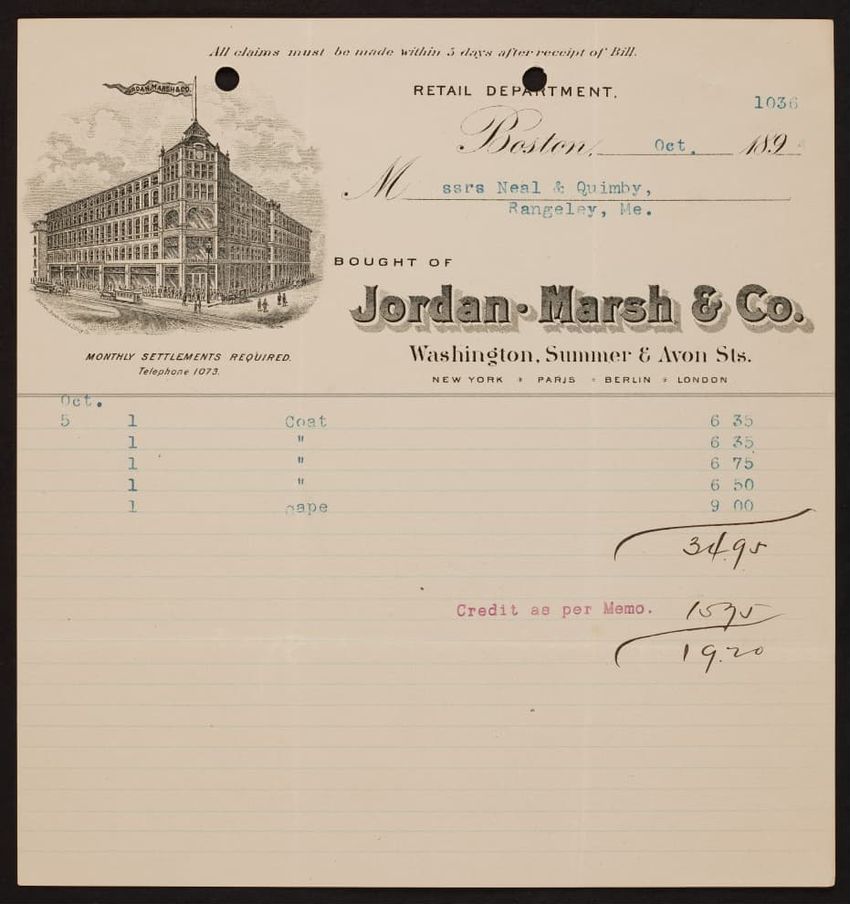 All claims must be made within 5 days after receipt of Bill.
JORDAN, MARSH & CO.
RETAIL DEPARTMENT.
1036
Boston, Oct. 189
Messrs Neal & Quimby,
Rangeley, Me.
BOUGHT OF
Jordan · Marsh & Co.
Washington, Summer & Avon Sts.
NEW YORK PARIS BERLIN LONDON
MONTHLY SETTLEMENTS REQUIRED.
Telephone 1073.
Oct.
5 1 Coat 6 35
1 " 6 35
1 " 6 75
1 " 6 50
1 cape 9 00
34.95
Credit as per Memo. 15.75
19.20